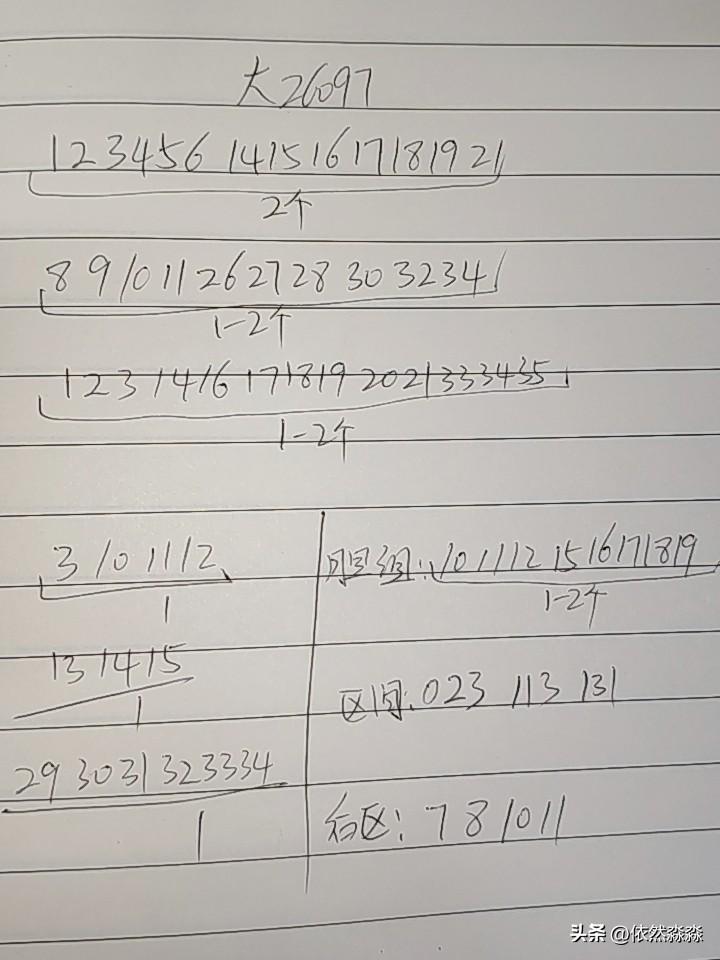 大26097
1 2 3 4 5 6 14 15 16 17 18 19 21
2个
8 9 10 11 26 27 28 30 32 34
1-2个
1 2 3 14 16 17 18 19 20 21 33 34 35
1-2个
3 10 11 12
1
13 14 15
1
29 30 31 32 33 34
1
胆组:10 11 12 15 16 17 18 19
1-2个
区间:023 113 131
后区:7 8 10 11
头条 @依然淼淼